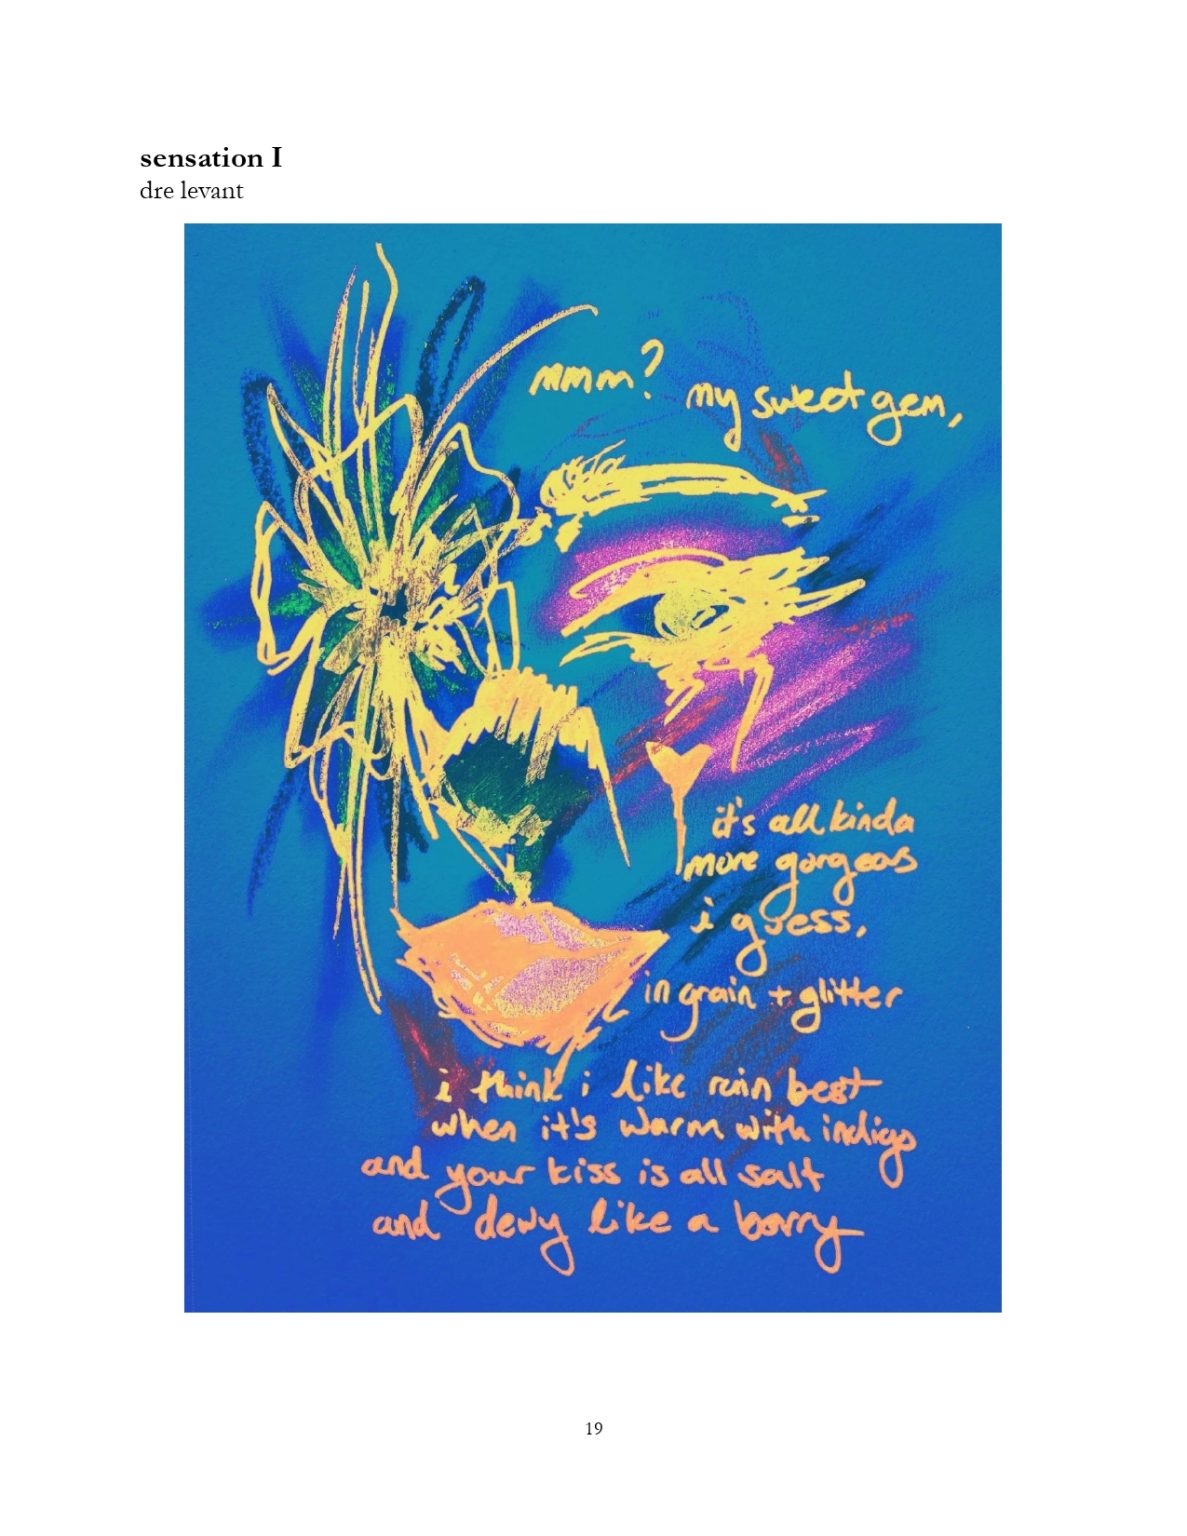 sensation I
dre levant
mmm? my sweet gem,
it's all kinda
more gorgeous
i guess,
in grain + glitter
i think i like rain best
when it's warm with indigo
and your kiss is all salt
and dewy like a berry
19